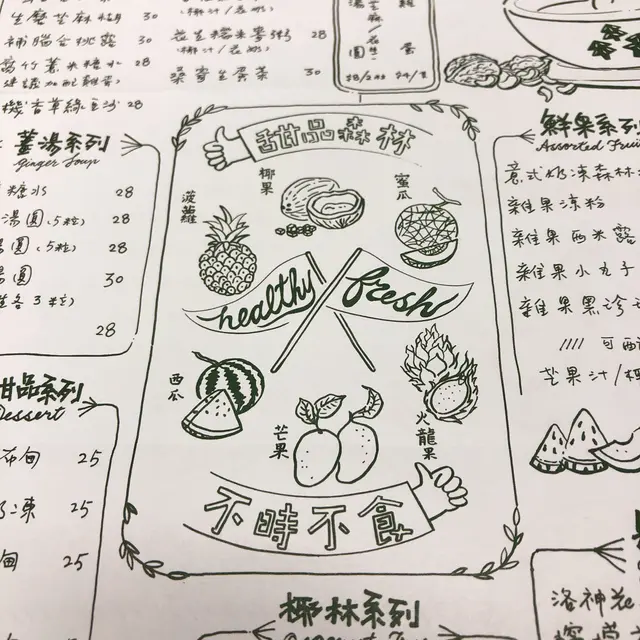 生磨芝麻糊 30
補腦合桃露 30
腐竹薏米糖水 28
(建議加配雞蛋)
香草綠豆沙 28
(椰汁/花奶)
花生糯米麥粥 28
(椰汁/花奶)
桑寄生蛋茶 30
薑湯系列
Ginger Soup
糖水 28
湯圓(5粒) 28
湯圓(5粒) 28
湯圓 30
各3粒)
28
甜品系列
Dessert
布甸 25
凍 25
甸 25
甜品森林
菠蘿
椰果
蜜瓜
healthy
fresh
西瓜
芒果
火龍果
不時不食
椰林系列
鮮果系列
Assorted Fruit
意式奶凍森林
雜果涼粉
雜果西米露
雜果小丸子
雜果黑珍
//// 可配
芒果汁/椰
洛神花